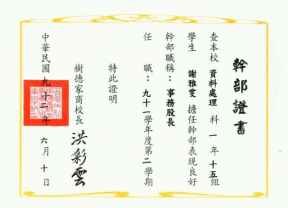 幹部證書
查本校 資料處理 科 一 年 十五組
學生 謝雅雯 擔任幹部表現良好
幹部職稱：事務股長
任 職：九十一學年度第二學期
特此證明
樹德家商校長 洪彩雲
中華民國 九十二 年 六 月 十 日